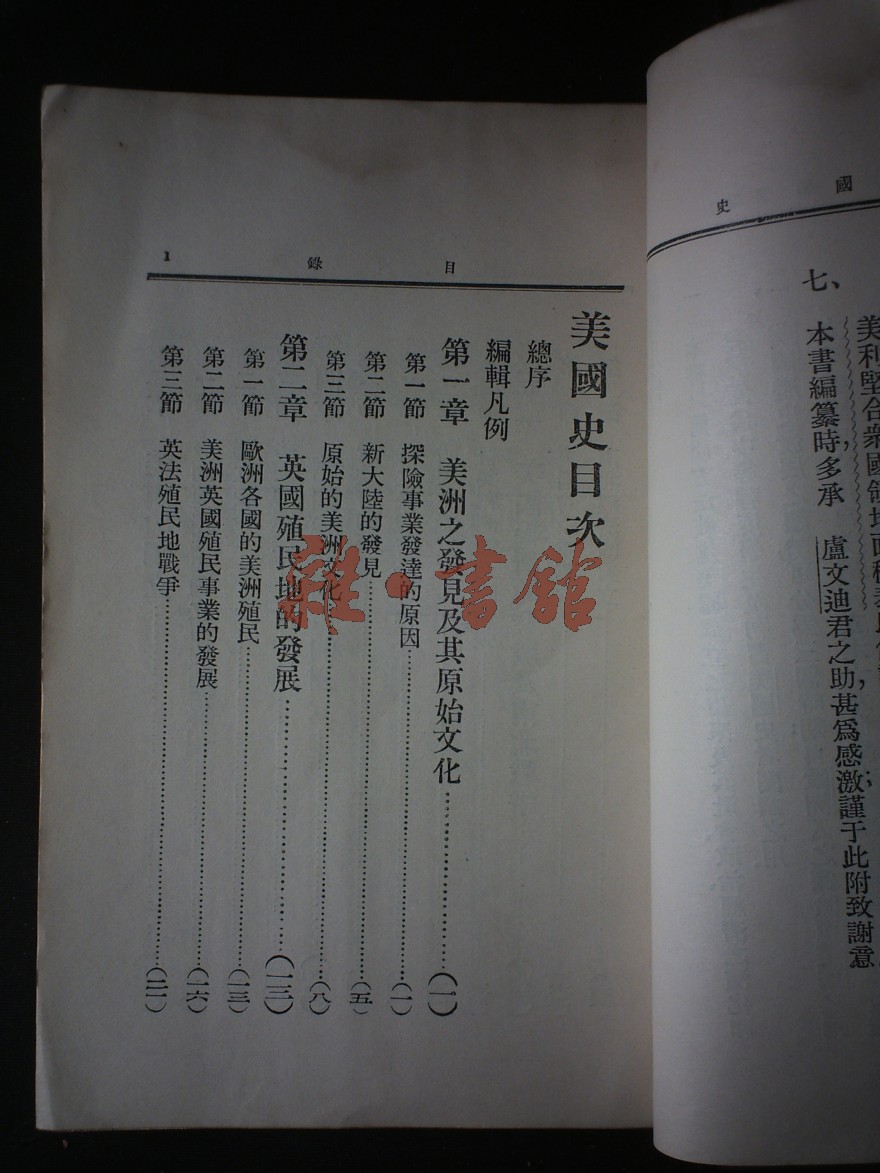 國史
七、
美利堅合衆國領地面積表
本書編纂時多承 盧文迪君之助，甚爲感激；謹于此附致謝意
目錄 1
美國史目次
總序
編輯凡例
第一章 美洲之發見及其原始文化……(一)
第一節 探險事業發達的原因……(一)
第二節 新大陸的發見……(五)
第三節 原始的美洲文化……(八)
第二章 英國殖民地的發展……(一三)
第一節 歐洲各國的美洲殖民……(一三)
第二節 美洲英國殖民事業的發展……(一六)
第三節 英法殖民地戰爭……(二一)
雜·書館